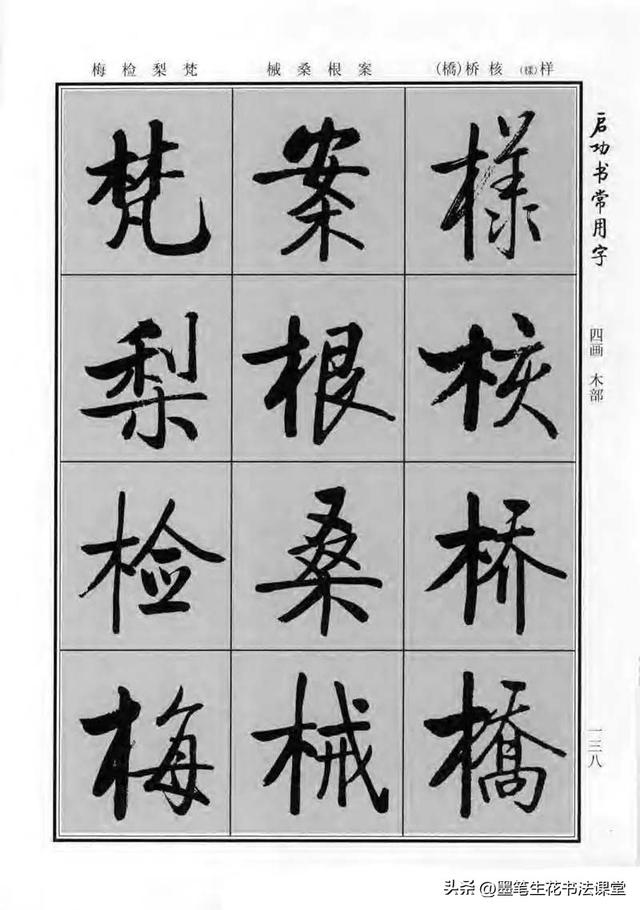 梅检梨梵 械桑根案 (橋)桥核(樣)样
启功书常用字
四画 木部
一三八
樣核桥橋
案根桑械
梵梨检梅
头条@墨笔生花书法课堂